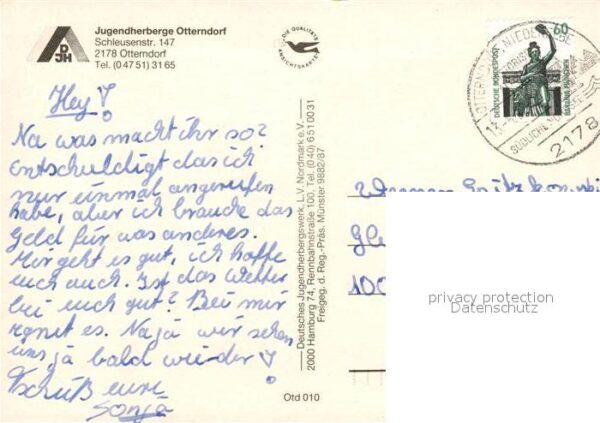 Jugendherberge Otterndorf
Schleusenstr. 147
2178 Otterndorf
Tel. (0 47 51) 31 65
DJH
DIE QUALITÄTS ANSICHTSKARTE
60
DEUTSCHE BUNDESPOST
BAVARIA MÜNCHEN
2178
Hey!
Na was macht ihr so?
Entschuldigt das ich
nur einmal angerufen
habe, aber ich brauche das
Geld für was anderes.
Mir geht es gut, ich hoffe
euch auch. Ist das Wetter
bei euch gut? Bei mir
regnet es. Na ja wir sehen
uns ja bald wieder!
Tschüß eure
Sonja
Deutsches Jugendherbergswerk, L.V. Nordmark e.V.
2000 Hamburg 74, Rennbahnstraße 100, Tel. (040) 651 00 31
Freigeg. d. Reg.-Präs. Münster 9882/87
Otd 010
Werner
100
privacy protection
Datenschutz